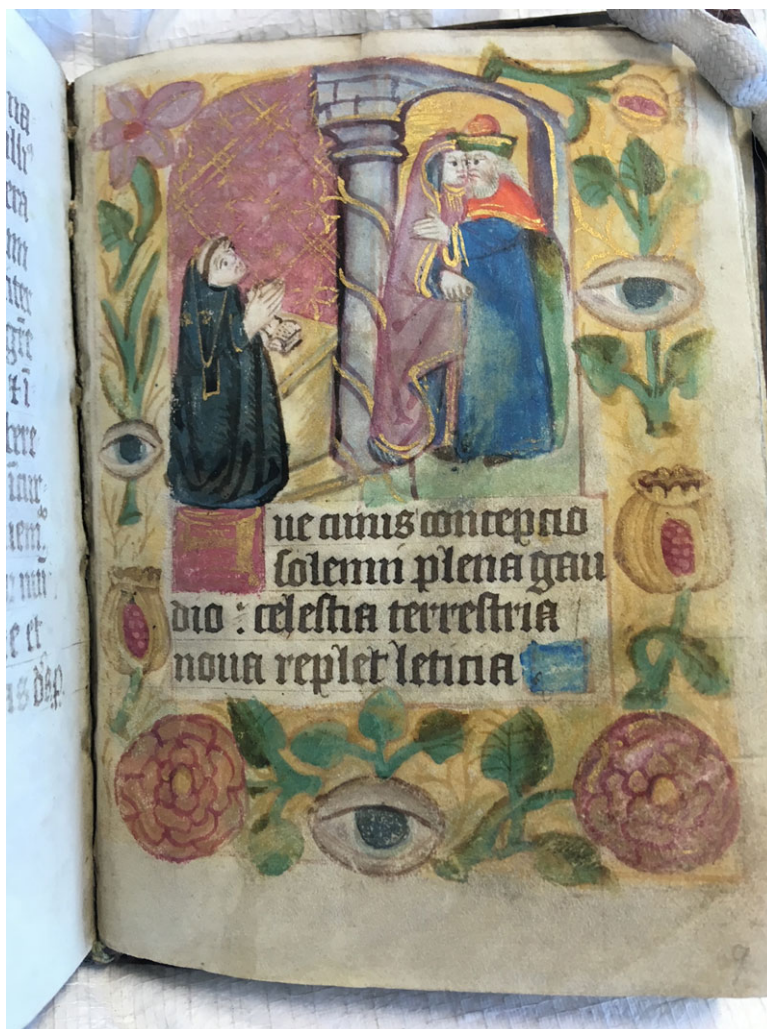 et
Aue cuius concepcio
solemni plena gau
dio : celestia terrestria
noua replet leticia
9